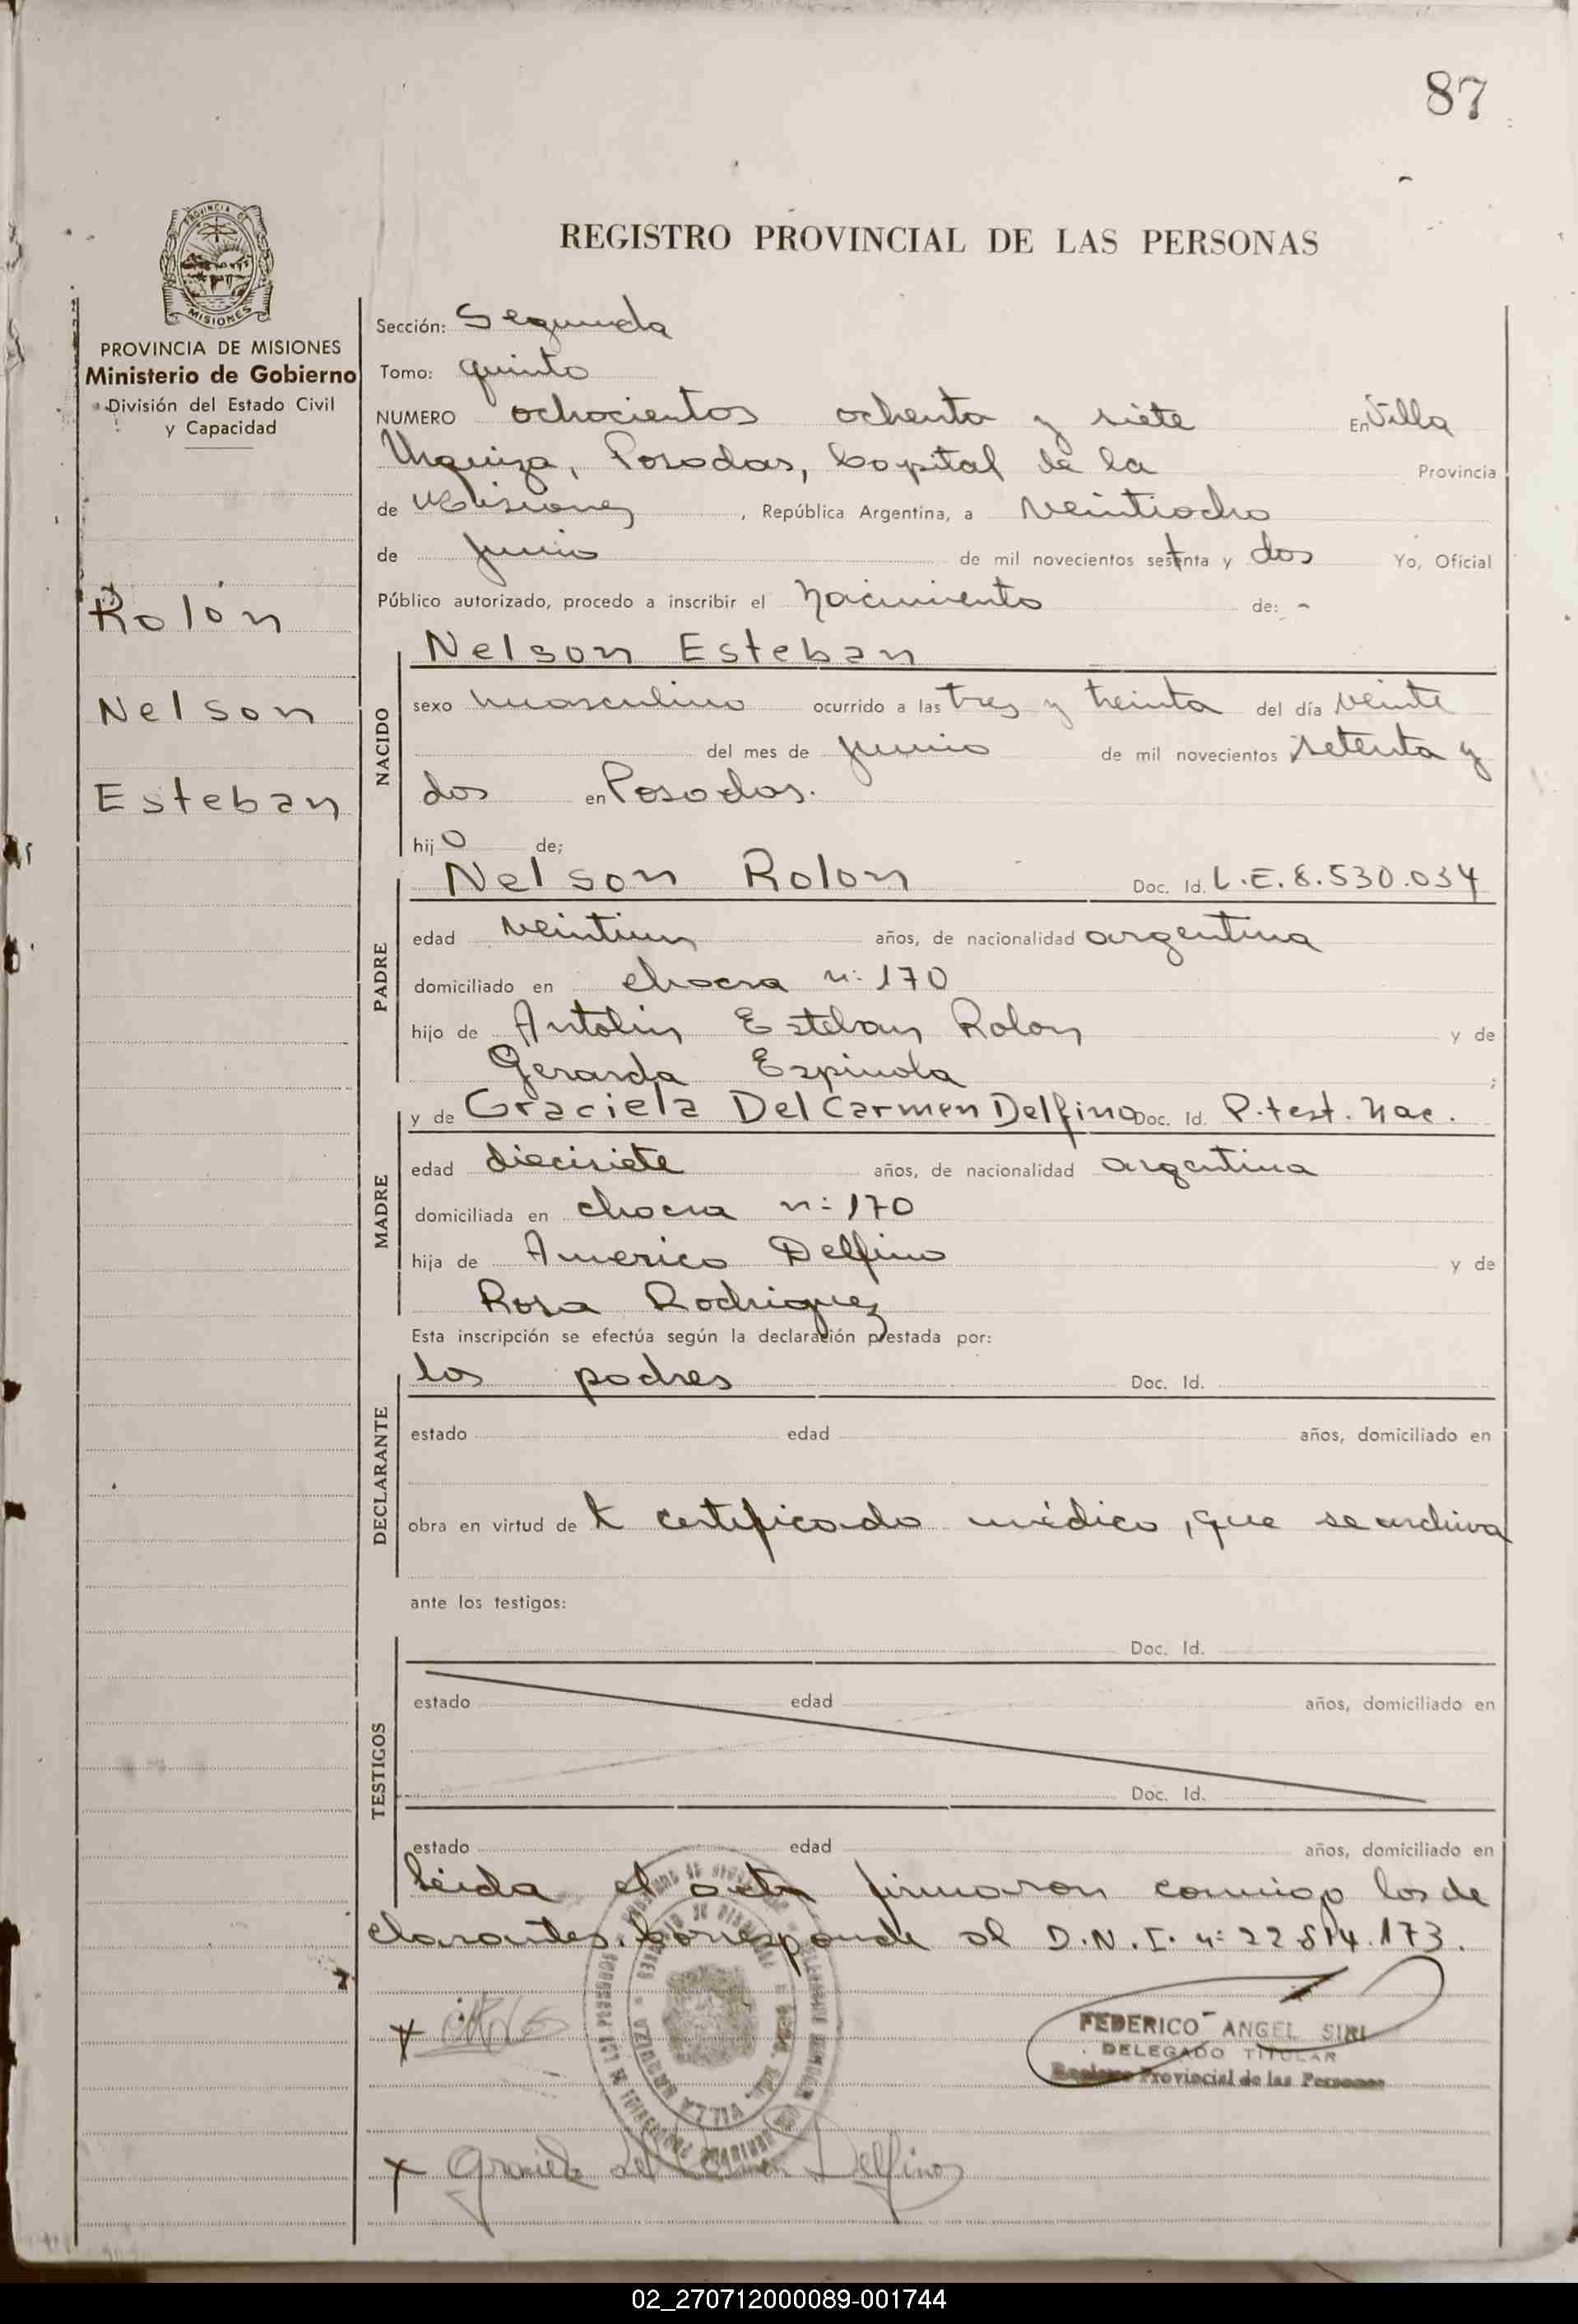 87
REGISTRO PROVINCIAL DE LAS PERSONAS
PROVINCIA DE
MISIONES
PROVINCIA DE MISIONES
Ministerio de Gobierno
División del Estado Civil
y Capacidad
Rolón
Nelson
Esteban
Sección: Segunda
Tomo: quinto
NUMERO ochocientos ochenta y siete En Villa
Urquiza, Posadas, Capital de la Provincia
de Misiones, República Argentina, a veintiocho
de junio de mil novecientos setenta y dos Yo, Oficial
Público autorizado, procedo a inscribir el nacimiento de: -
Nelson Esteban
NACIDO
sexo masculino ocurrido a las tres y treinta del día veinte
del mes de junio de mil novecientos setenta y
dos en Posadas.
hijo de;
Nelson Rolon Doc. Id. L.E. 8.530.034
PADRE
edad veintiun años, de nacionalidad argentina
domiciliado en chacra n: 170
hijo de Antolin Esteban Rolon y de
Gerarda Espinola ;
y de Graciela Del Carmen Delfino Doc. Id. P. test. Nac.
MADRE
edad diecisiete años, de nacionalidad argentina
domiciliada en chacra n: 170
hija de Americo Delfino y de
Rosa Rodriguez
Esta inscripción se efectúa según la declaración prestada por:
los padres Doc. Id.
DECLARANTE
estado edad años, domiciliado en
obra en virtud de certificado médico, que se archiva
ante los testigos:
Doc. Id.
TESTIGOS
estado edad años, domiciliado en
Doc. Id.
estado edad años, domiciliado en
Leida el acta firmaron conmigo los de
clarantes. Corresponde al D.N.I. n: 22.814.173.
FEDERICO ANGEL SIRI
DELEGADO TITULAR
Registro Provincial de las Personas
VILLA URQUIZA
Graciela del Carmen Delfino
02_270712000089-001744